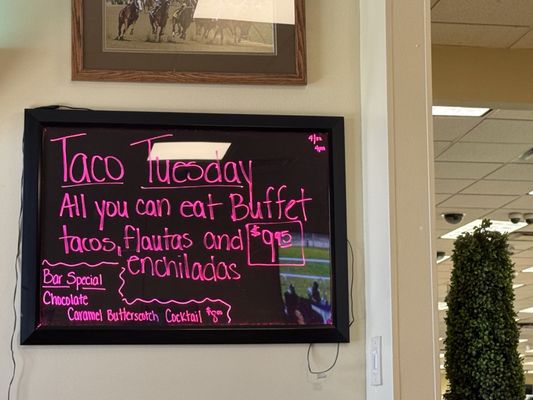 Taco Tuesday
4/22
4pm
All you can eat Buffet
tacos, flautas and $9.95
enchiladas
Bar Special
Chocolate
Caramel Butterscotch Cocktail $8.00